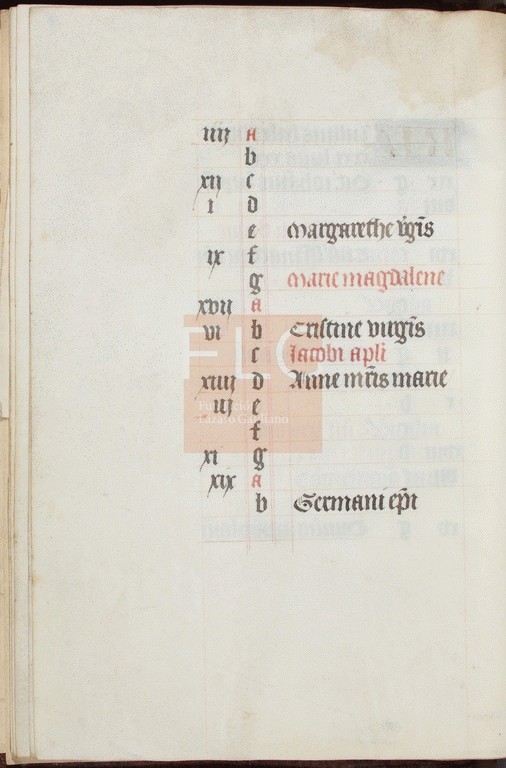 iiij a
b
xij c
i d
e Margarethe v̄gīs
ix f
g Marie magdalene
xvij a
vi b Cristine virgīs
c Iacobi apli
xiiij d Anne mr̄is marie
iij e
f
xi g
xix a
b Germani ep̄i
FLG
Fundación
Lázaro Galdiano